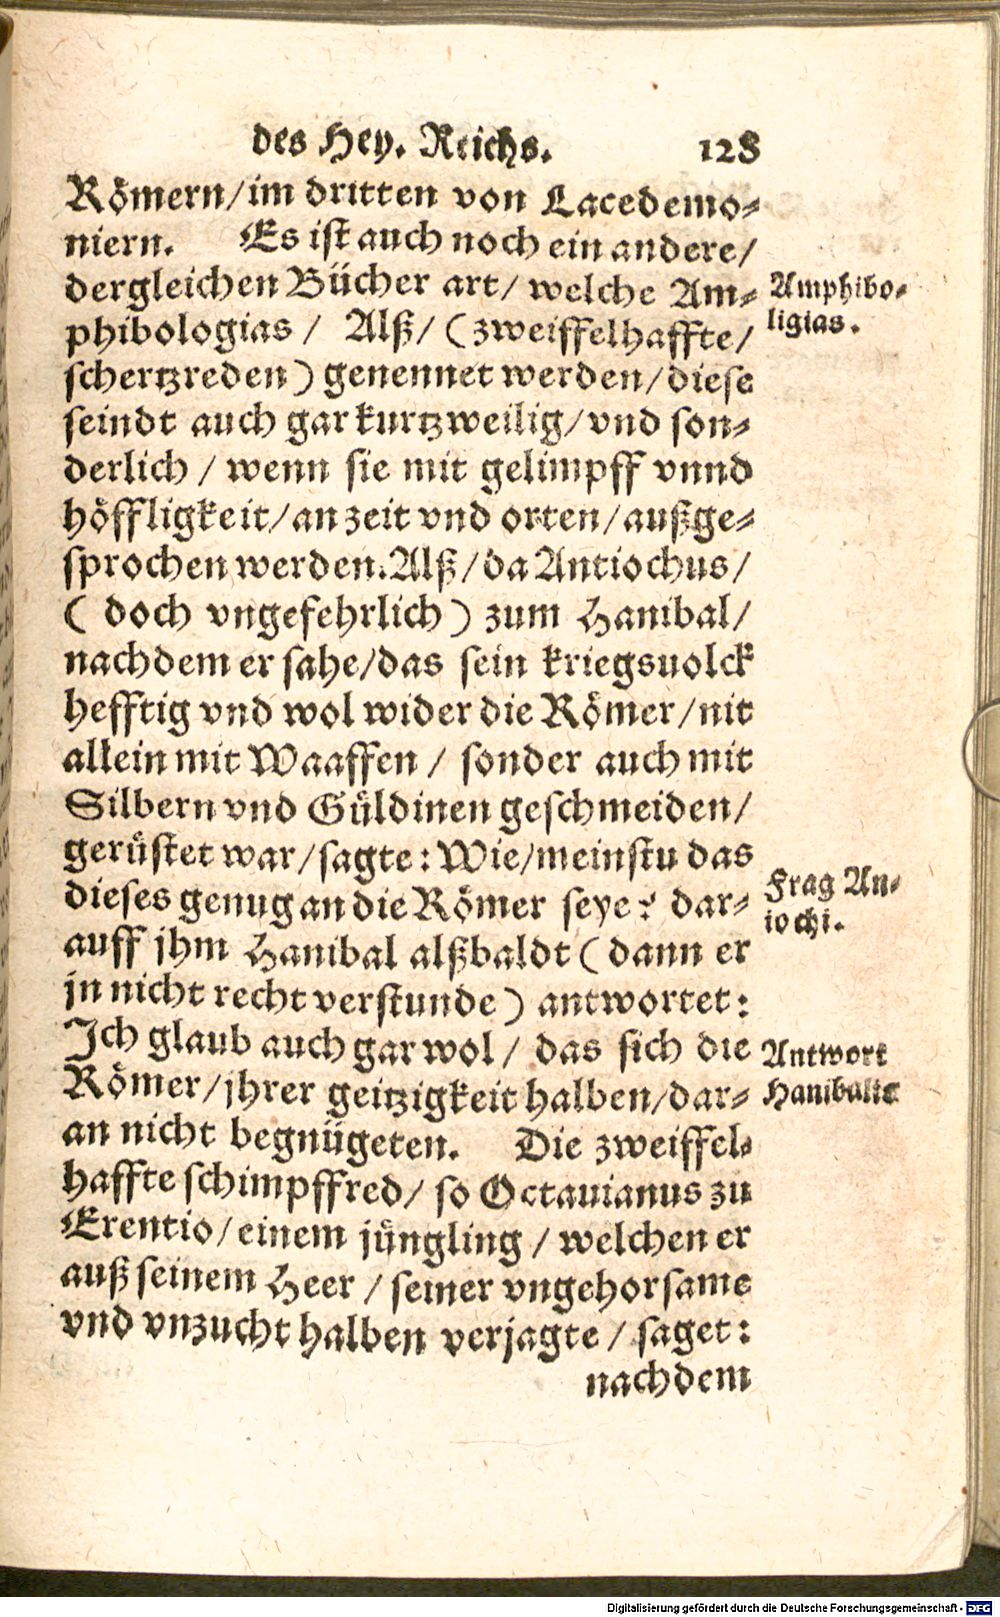 des Hey. Reichs. 128
Römern/im dritten von Lacedemo-
niern. Es ist auch noch ein andere/
dergleichen Bücher art/ welche Am-
phibologias / Alß/ (zweiffelhaffte/
schertzreden) genennet werden/diese
seindt auch gar kurtzweilig/vnd son-
derlich / wenn sie mit gelimpff vnnd
höffligkeit/an zeit vnd orten/außge-
sprochen werden.Alß/da Antiochus/
( doch vngefehrlich) zum Hanibal/
nachdem er sahe/das sein kriegsuolck
hefftig vnd wol wider die Römer/nit
allein mit Waaffen / sonder auch mit
Silbern vnd Güldinen geschmeiden/
gerüstet war/sagte: Wie/meinstu das
dieses genug an die Römer seye? dar-
auff jhm Hanibal alßbaldt ( dann er
jn nicht recht verstunde) antwortet:
Ich glaub auch gar wol/ das sich die
Römer/jhrer geitzigkeit halben/dar-
an nicht begnügeten. Die zweiffel-
haffte schimpffred/ so Octauianus zu
Erentio/einem jüngling / welchen er
auß seinem Heer / seiner vngehorsame
vnd vnzucht halben verjagte / saget:
nachdem
Amphibo-
ligias.
Frag An-
iochi.
Antwort
Hanibalis
Digitalisierung gefördert durch die Deutsche Forschungsgemeinschaft - DFG